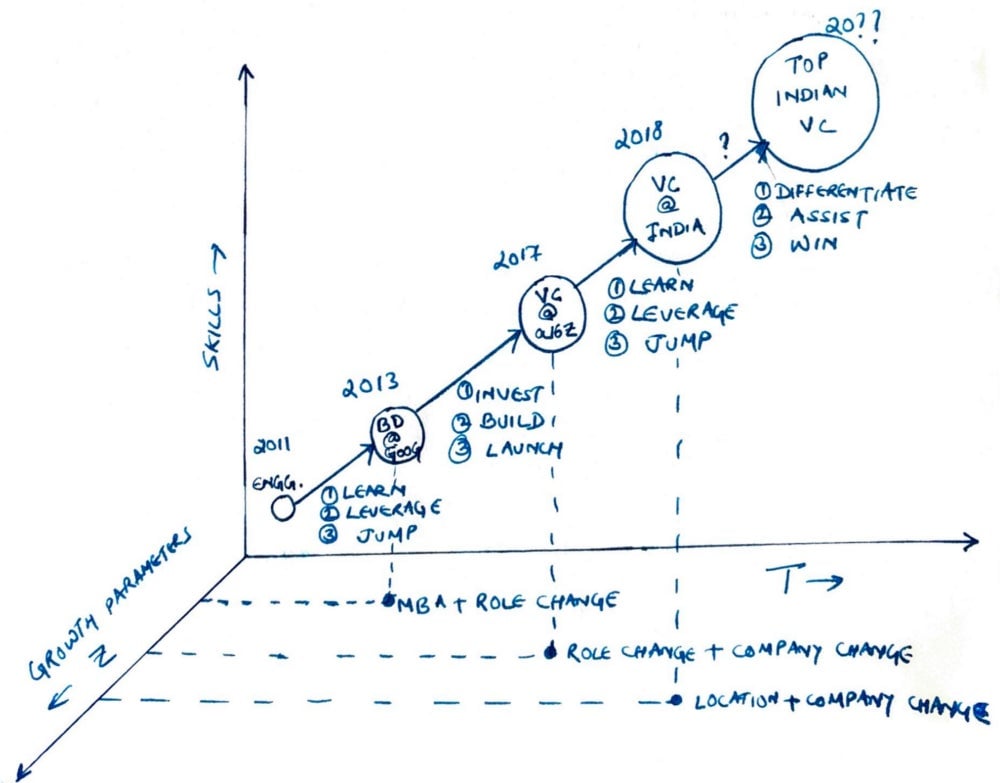 20??
TOP
INDIAN
VC
2018
?
VC
@
INDIA
① DIFFERENTIATE
② ASSIST
③ WIN
2017
VC
@
① LEARN
② LEVERAGE
③ JUMP
SKILLS →
2013
BD
@
GOOG
① INVEST
② BUILD
③ LAUNCH
2011
ENGG.
① LEARN
② LEVERAGE
③ JUMP
T →
GROWTH PARAMETERS
Z
MBA + ROLE CHANGE
ROLE CHANGE + COMPANY CHANGE
LOCATION + COMPANY CHANGE